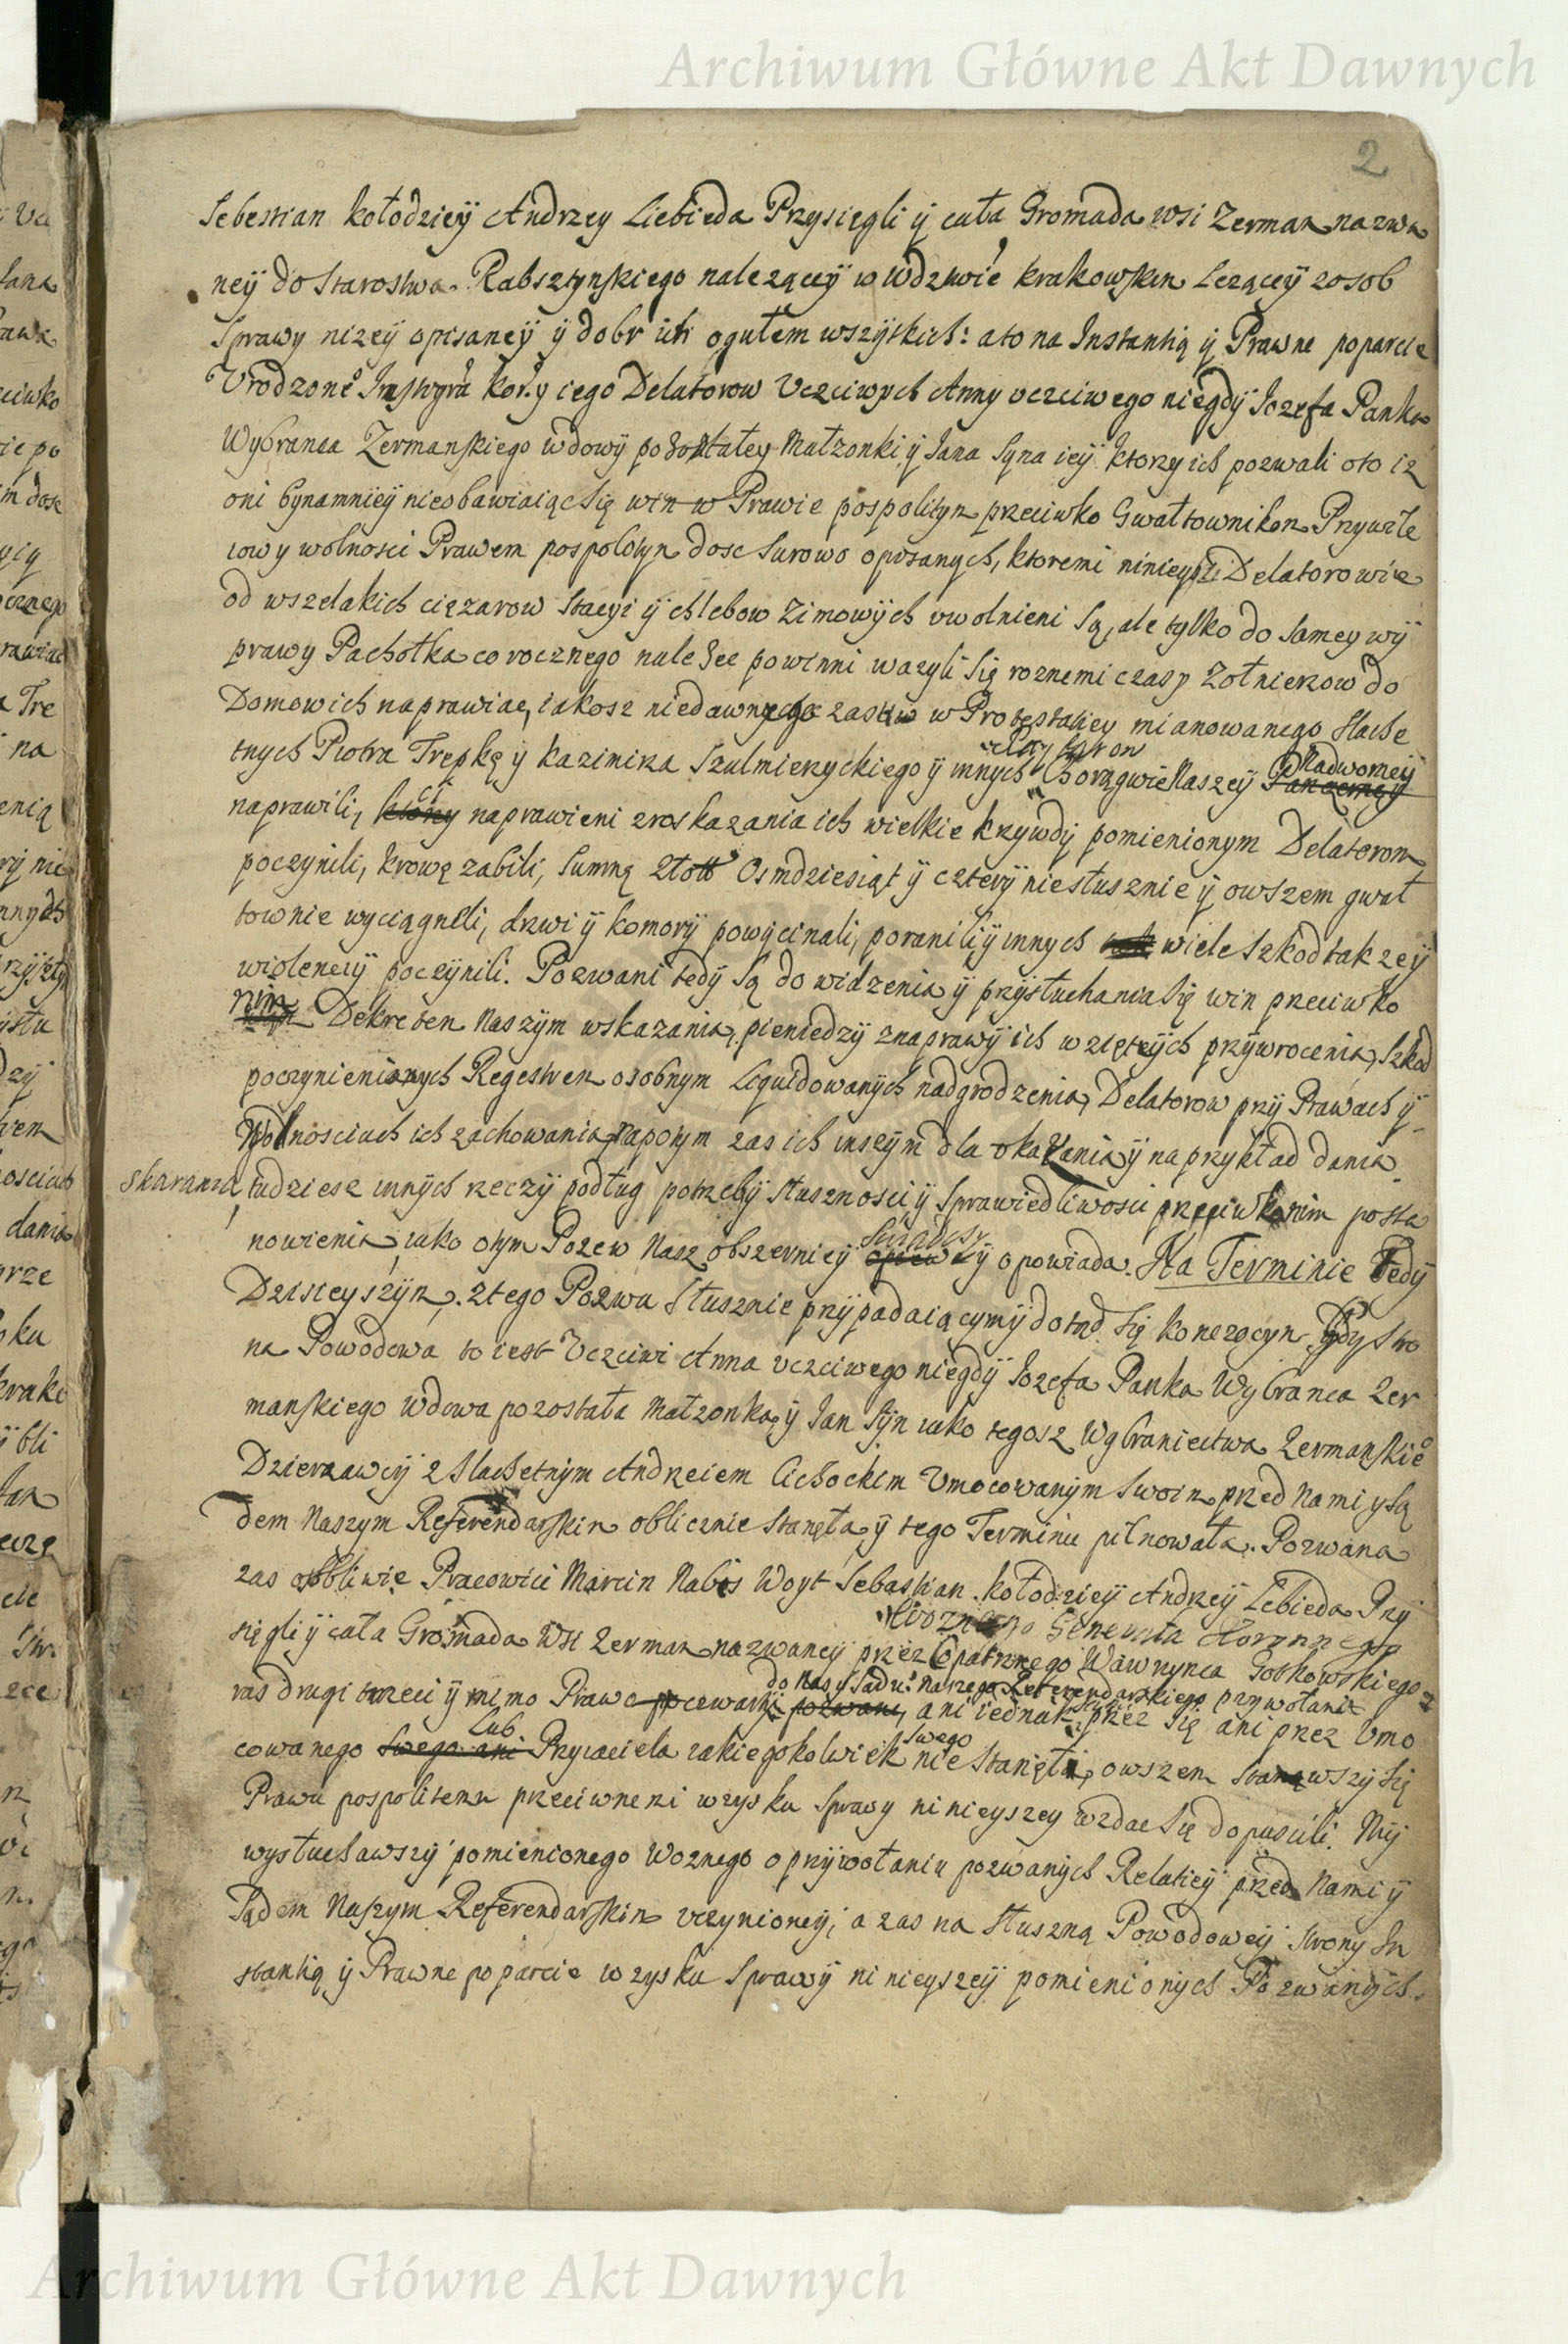 Archiwum Główne Akt Dawnych
2
Sebestian kołodzieÿ Andrzey Liebieda Przysięgli ÿ cała Gromada wsi Zerman nazwa
neÿ do Starostwa Rabsztynskiego nalezączeÿ w Wdztwie krakowskim Lezączeÿ zosob
Sprawy nizeÿ opisaneÿ ÿ dobr ich ogułem wszÿtkich: ato na Instantią ÿ Prawne poparcie
Vrodzone° Kor. y iego Delatorow Vczciwych Anny vczciwego niegdÿ Iozefa Panka
Wybranca Zermanskiego wdowÿ pozostałey Małzonki ÿ Jana Syna ieÿ ktorzy ich pozwali oto iz
oni bynamnieÿ nieobawiaiąc się win w Prawie pospolitym przeciwko Gwałtownikom Przywile
iowy wolnosci Prawem pospolitym dosc surowo opisanych, ktoremi ninieyszi Delatorowie
od wszelakich cięzarow stacyi ÿ chlebow Zimowÿch vwolnieni są, ale tylko do samey wÿ
prawy Pachołka corocznego nalezec powinni wazyli się roznemi czasy Zołnierzow do
Domow ich naprawiac, iakosz niedawnych czasow w Protestatiey mianowanego Slache
tnych Piotra Trepkę ÿ kazimirza Szulmierzyckiego ÿ innych Chorągwie Naszeÿ Nadworneÿ Pancerney
naprawili, ktorzy ci naprawieni zroskazania ich wielkie krzywdÿ pomienionym Delatorom
poczynili, krowę zabili, summę złott Osmdziesiąt ÿ czterÿ niesłusznie ÿ owszem gwał
townie wyciągneli, drzwi ÿ komorÿ powÿcinali, poranili ÿ innych wiele szkod takzeÿ
violencÿÿ poczÿnili. Pozwani tedÿ są do widzenia ÿ przÿsłuchania się win przeciwko
nim Dekretem Naszÿm wskazania, pieniedzÿ znaprawÿ ich wziętÿch przÿwrocenia, szkod
poczynionych Regestrem osobnym Liquidowanÿch nadgrodzenia, Delatorow przÿ Prawach ÿ
Wolnosciach ich zachowania, zas ich inszÿm dla ÿ na przykład dania
skarania, tudziesz innÿch rzeczÿ podług potrzebÿ słusznosci ÿ sprawiedliwosci przeciwko nim posta
nowienia, iako otym Pozew Nasz obszernieÿ ÿ opowiada. Na Terminie Tedÿ
Dzisieyszÿm ztego Pozwu słusznie przÿpadaiącymÿ dotąd się konczącym, gdÿ stro
na Powodowa to iest Vczciwi Anna vczciwego niegdÿ Iozefa Panka Wybranca Zer
manskiego wdowa pozostała Małzonka, ÿ Jan sÿn iako tegosz Wybraniectwa Zermanskie°
Dzierzawcÿ z Slachetnÿm Andrzeiem Cichockim Vmocowanÿm swoim przed Nami ÿ Są
dem Naszym Referendarskim oblicznie stanęła ÿ tego Terminu pilnowała. Pozwana
zas osobliwie Pracowici Marcin Nabis Woyt Sebastian kołodzieÿ Andrzeÿ Lebieda Przÿ
sięgli ÿ cała Gromada Wsi Zerman nazwaneÿ przez Opatrznego Woznego Generała Koronnego Wawrzynca Gotkowskiego
ras drugi trzeci ÿ mimo Prawo pozwani do Nas y Sadu Naszego Referendarskiego przywołani ani iednak przez się ani przez Vmo
cowanego swego ani Lub Przyiaciela iakiegokolwiek swego nie stanęli, owszem stawszÿ się
Prawu pospolitemu przeciwnemi wzysku sprawy ninieyszey wzdac się dopuscili. Mÿ
wysłuchawszÿ pomienionego Woznego o przÿwołaniu pozwanÿch Relatieÿ przed Nami ÿ
Sądem Naszym Referendarskim vczynioneÿ, a zas na słuszną Powodoweÿ strony In
stantią ÿ Prawne poparcie wzysku sprawÿ ninieyszeÿ pomienionÿch Pozwanÿch
Archiwum Główne Akt Dawnych